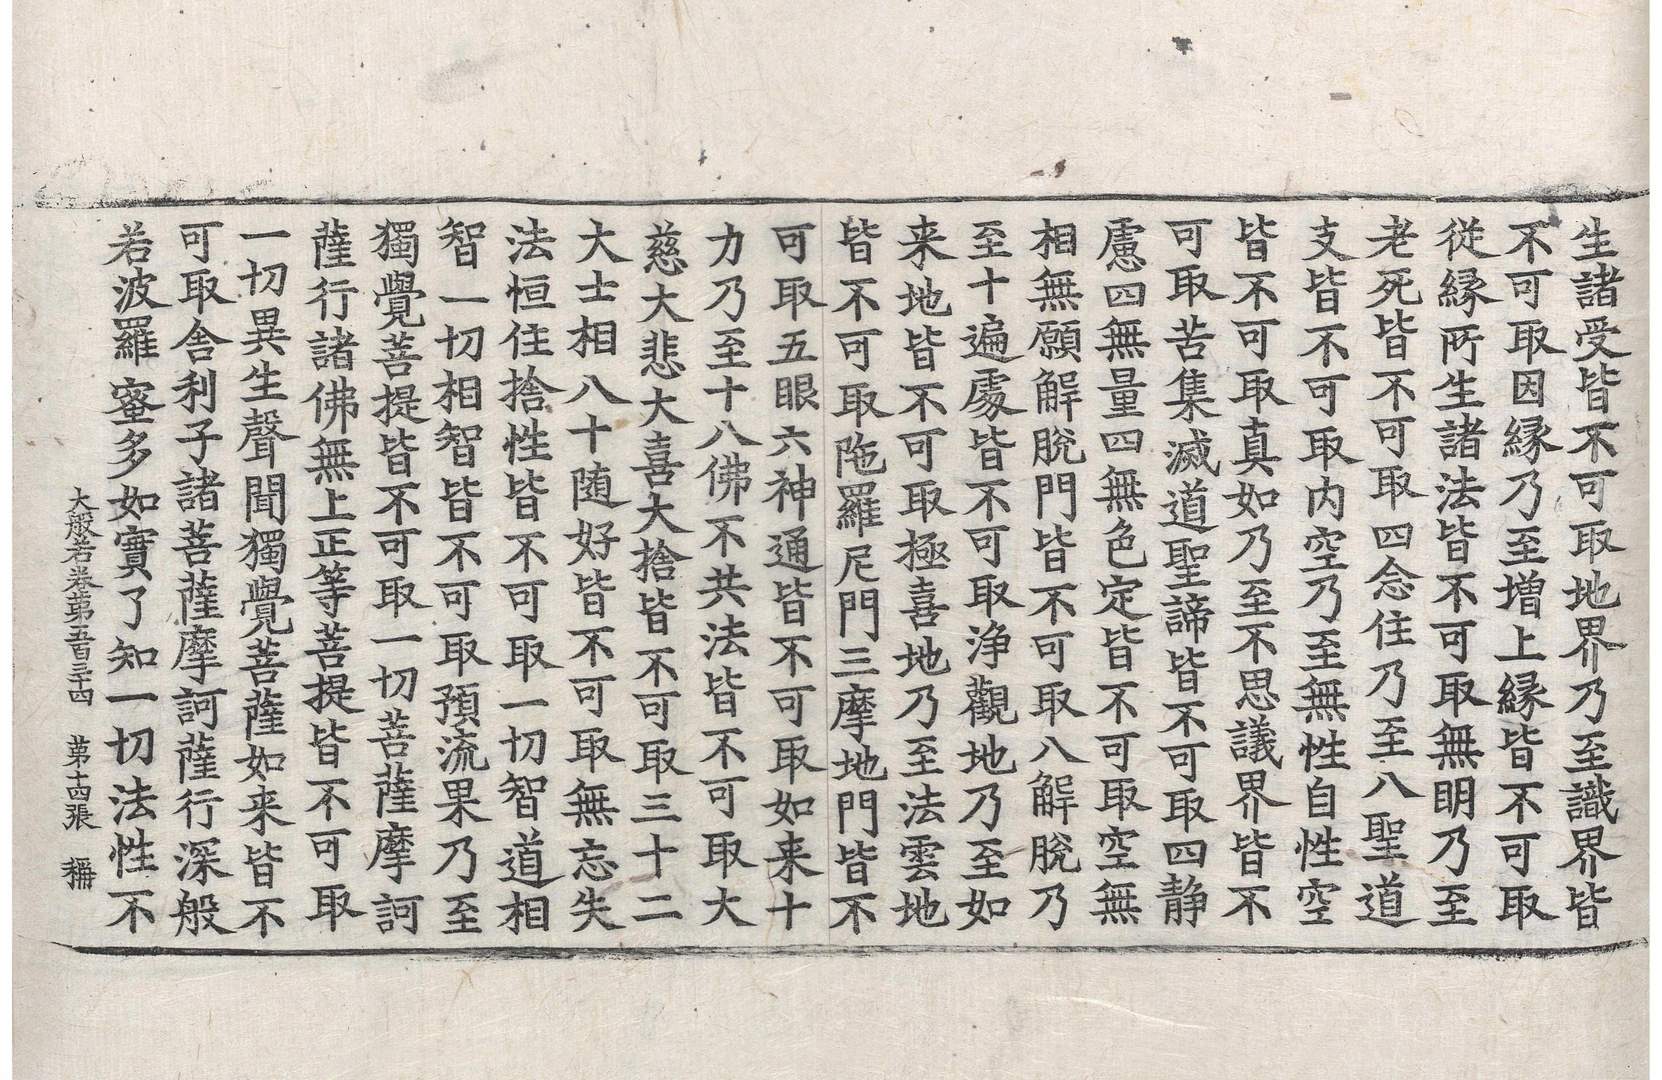 生諸受皆不可取地界乃至識界皆
不可取因縁乃至增上縁皆不可取
從縁所生諸法皆不可取無明乃至
老死皆不可取四念住乃至八聖道
支皆不可取内空乃至無性自性空
皆不可取真如乃至不思議界皆不
可取苦集滅道聖諦皆不可取四静
慮四無量四無色定皆不可取空無
相無願解脫門皆不可取八解脫乃
至十遍處皆不可取浄觀地乃至如
来地皆不可取極喜地乃至法雲地
皆不可取陁羅尼門三摩地門皆不
可取五眼六神通皆不可取如来十
力乃至十八佛不共法皆不可取大
慈大悲大喜大捨皆不可取三十二
大士相八十随好皆不可取無忘失
法恒住捨性皆不可取一切智道相
智一切相智皆不可取預流果乃至
獨覺菩提皆不可取一切菩薩摩訶
薩行諸佛無上正等菩提皆不可取
一切異生聲聞獨覺菩薩如来皆不
可取舍利子諸菩薩摩訶薩行深般
若波羅蜜多如實了知一切法性不
大般若卷第五百三十四 第十四張 稱